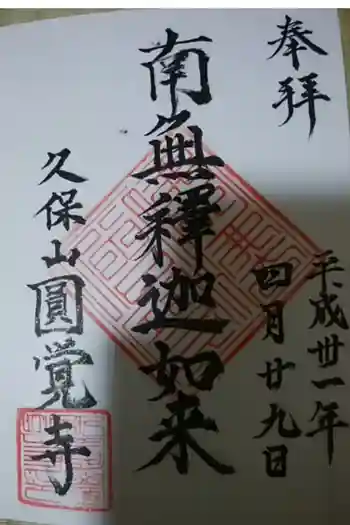 奉拝
平成卅一年
四月廿九日
南無釋迦如来
久保山圓覚寺